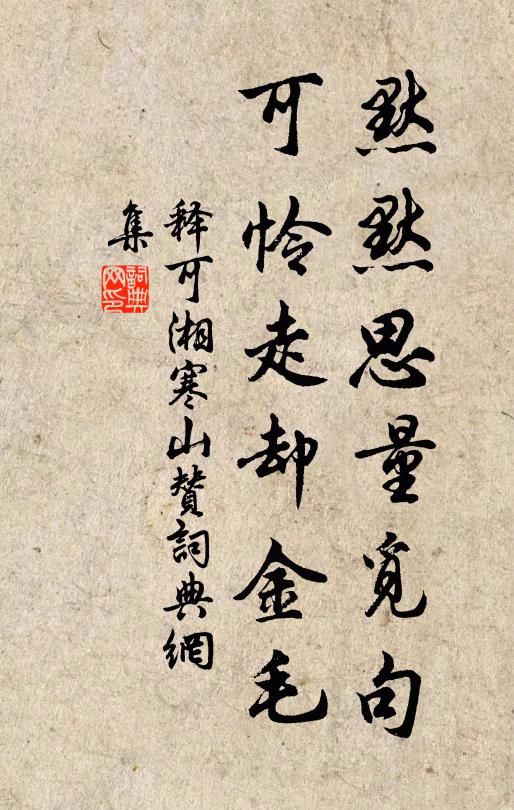 默默思量觅句
可怜走却金毛
释可湘寒山赞詞典網
集
詞典网印